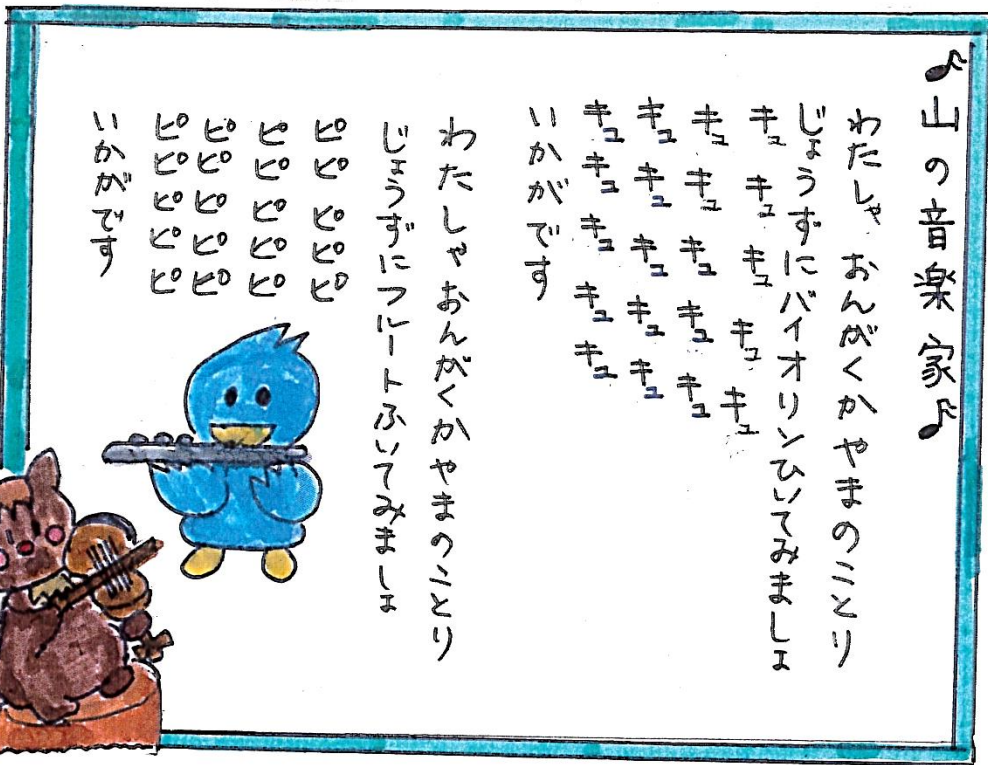 ♪山の音楽家♪
わたしゃ おんがくかやまのことり
じょうずにバイオリンひいてみましょ
キュキュキュキュキュ
キュキュキュキュキュ
キュキュキュキュキュ
キュキュキュキュキュ
いかがです
わたしゃおんがくかやまのことり
じょうずにフルートふいてみましょ
ピピピピピ
ピピピピピ
ピピピピピ
ピピピピピ
いかがです